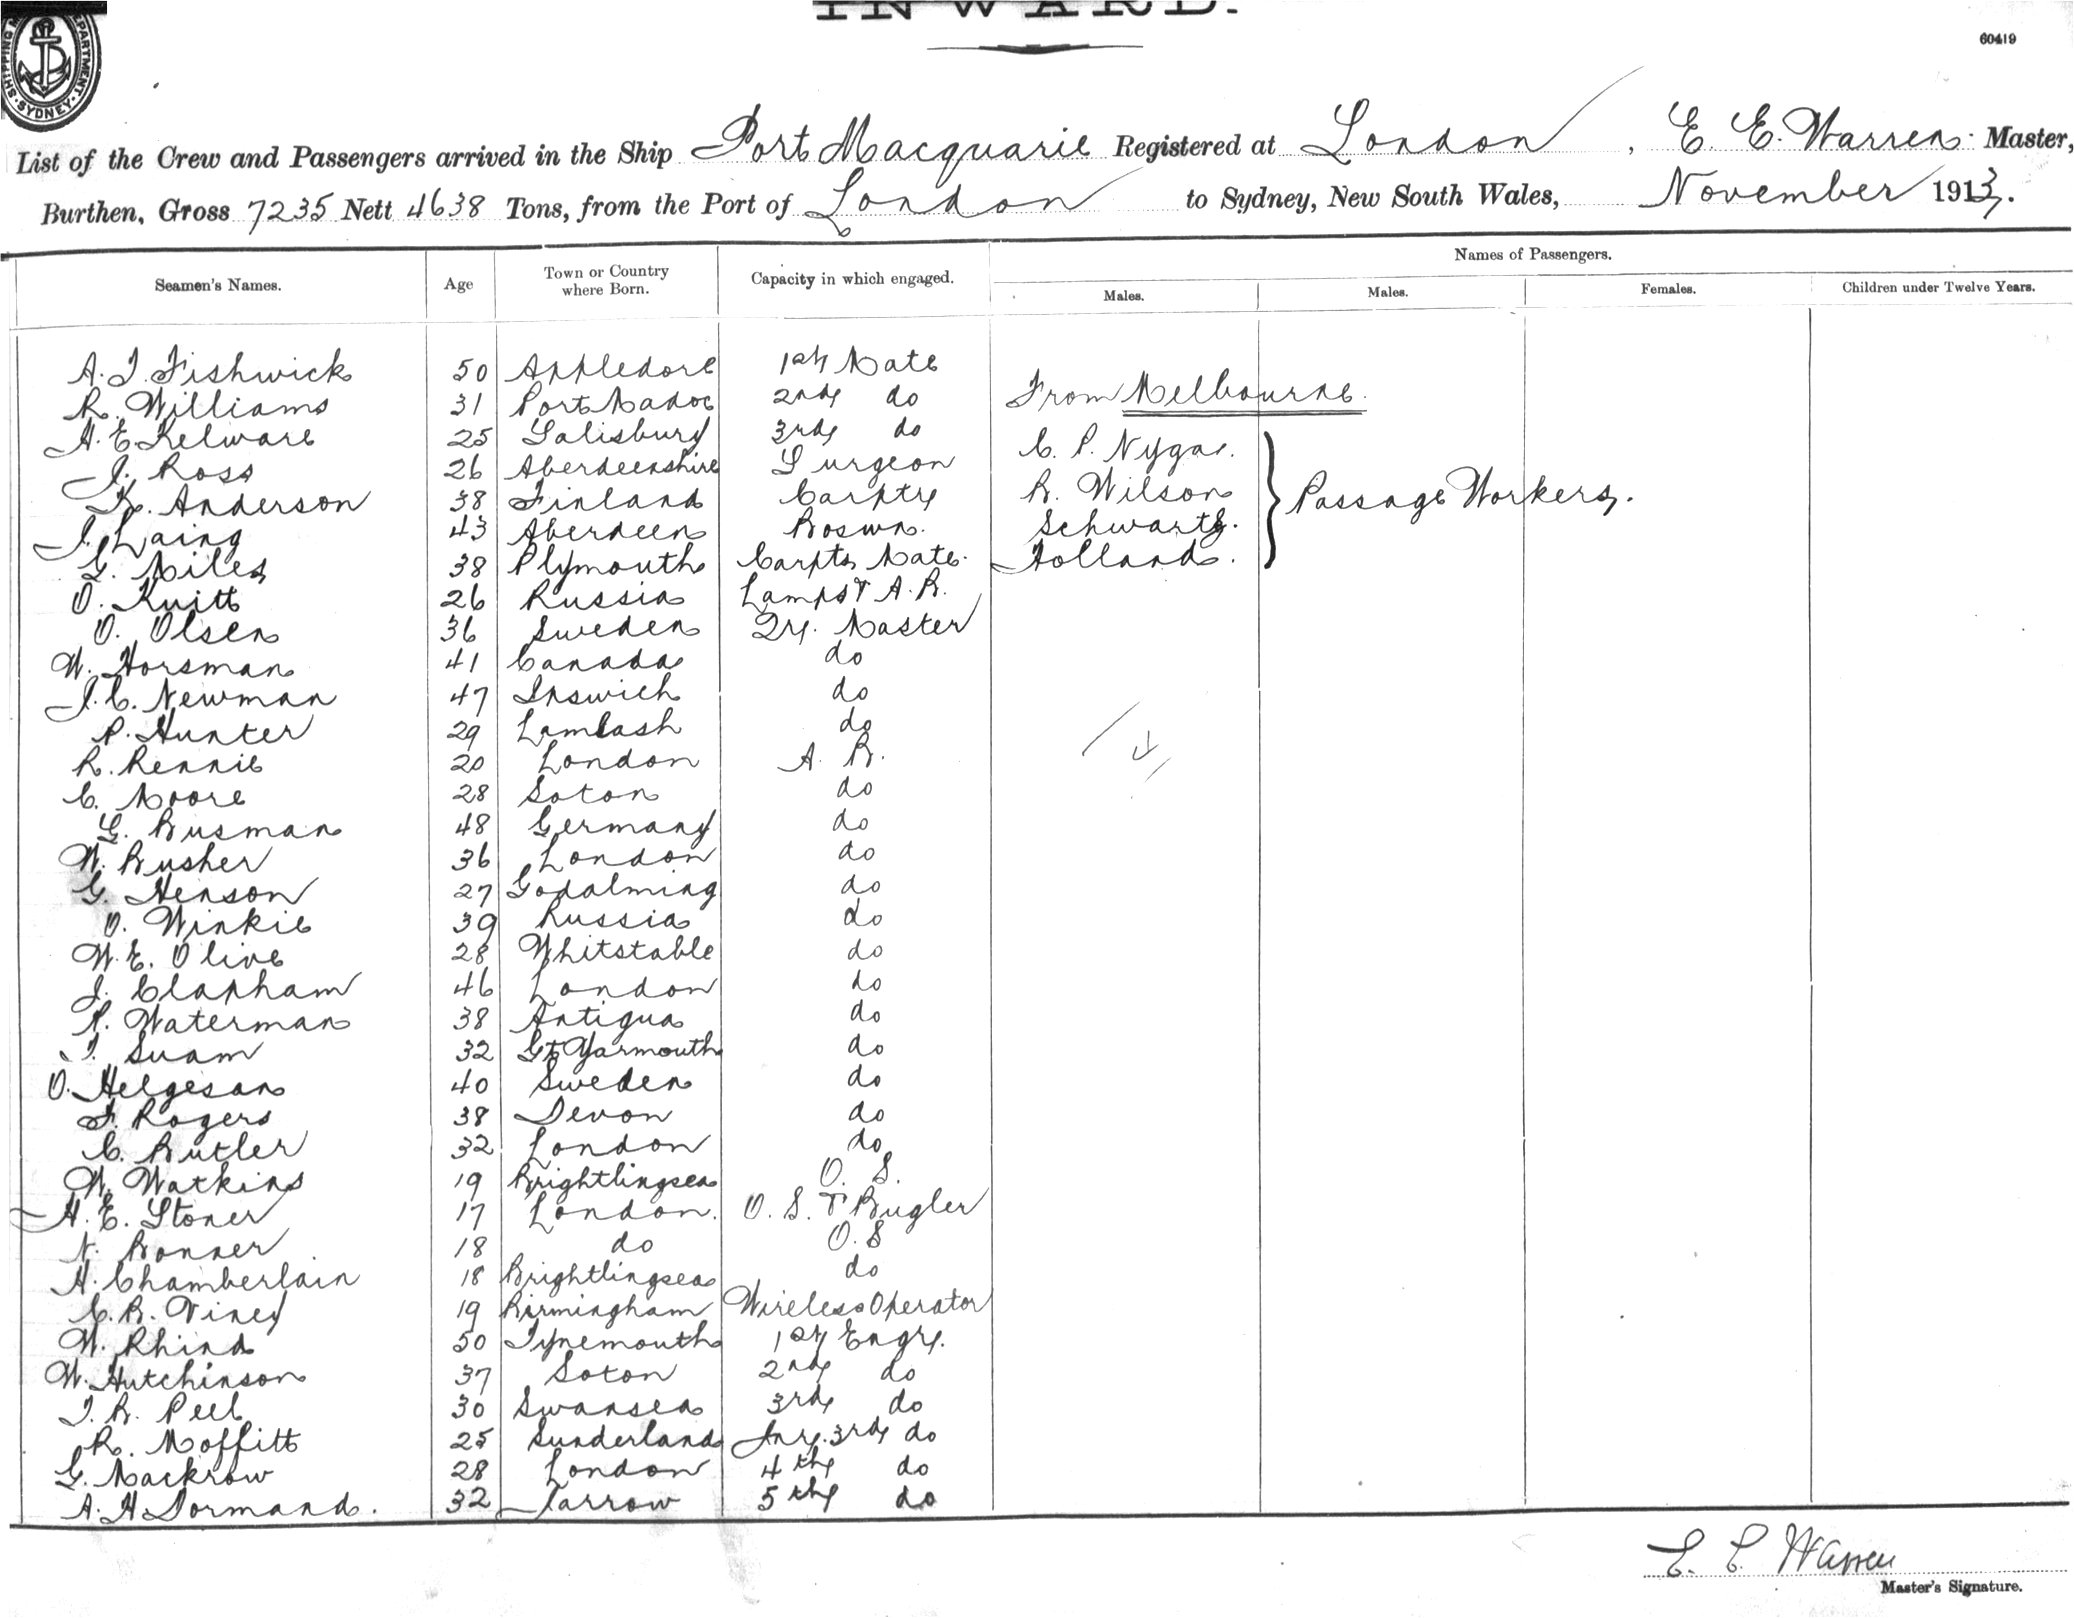 INWARD.
60419
SHIPPING DEPARTMENT SYDNEY
List of the Crew and Passengers arrived in the Ship Port Macquarie Registered at London, E. E. Warren Master,
Burthen, Gross 7235 Nett 4638 Tons, from the Port of London to Sydney, New South Wales, November 1913.
Seamen's Names. Age Town or Country where Born. Capacity in which engaged. Names of Passengers.
Males. Males. Females. Children under Twelve Years.
A. J. Fishwick 50 Appledore 1st Mate
R. Williams 31 Port Madoc 2nd do From Melbourne.
H. E. Kelware 25 Salisbury 3rd do C. P. Nygar.
J. Ross 26 Aberdeenshire Surgeon B. Wilson Passage Workers.
K. Anderson 38 Finland Carptr Schwartz.
J. Laing 43 Aberdeen Boswn. Holland.
G. Miles 38 Plymouth Carpts Mate.
O. Kuitt 26 Russia Lamps & A. B.
O. Olsen 36 Sweden Qr. Master
W. Horsman 41 Canada do
J. C. Newman 47 Ipswich do
P. Hunter 29 Lamlash do
R. Rennie 20 London A. B.
C. Moore 28 Soton do
G. Busman 48 Germany do
W. Busher 36 London do
G. Henson 27 Godalming do
O. Winkie 39 Russia do
W. E. Olive 28 Whitstable do
J. Clapham 46 London do
P. Waterman 38 Antigua do
J. Suam 32 Gt Yarmouth do
O. Helgesan 40 Sweden do
F. Rogers 38 Devon do
C. Butler 32 London do
W. Watkins 19 Brightlingsea O. S.
H. E. Stoner 17 London. O. S. & Bugler
N. Bonner 18 do O. S
H. Chamberlain 18 Brightlingsea do
C. B. Viney 19 Birmingham Wireless Operator
W. Rhind 50 Tynemouth 1st Engr.
W. Hutchinson 37 Soton 2nd do
J. B. Peel 30 Swansea 3rd do
R. Moffitt 25 Sunderland Jnr. 3rd do
G. Mackrow 28 London 4th do
A. H Dormand. 32 Jarrow 5th do
E. E. Warren
Master's Signature.